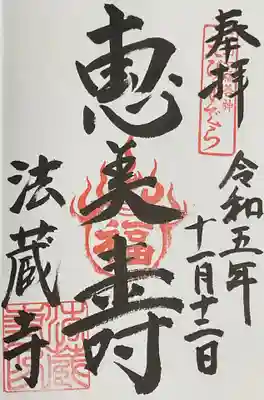 奉拝
令和五年
十一月十二日
恵美壽
福
法蔵寺